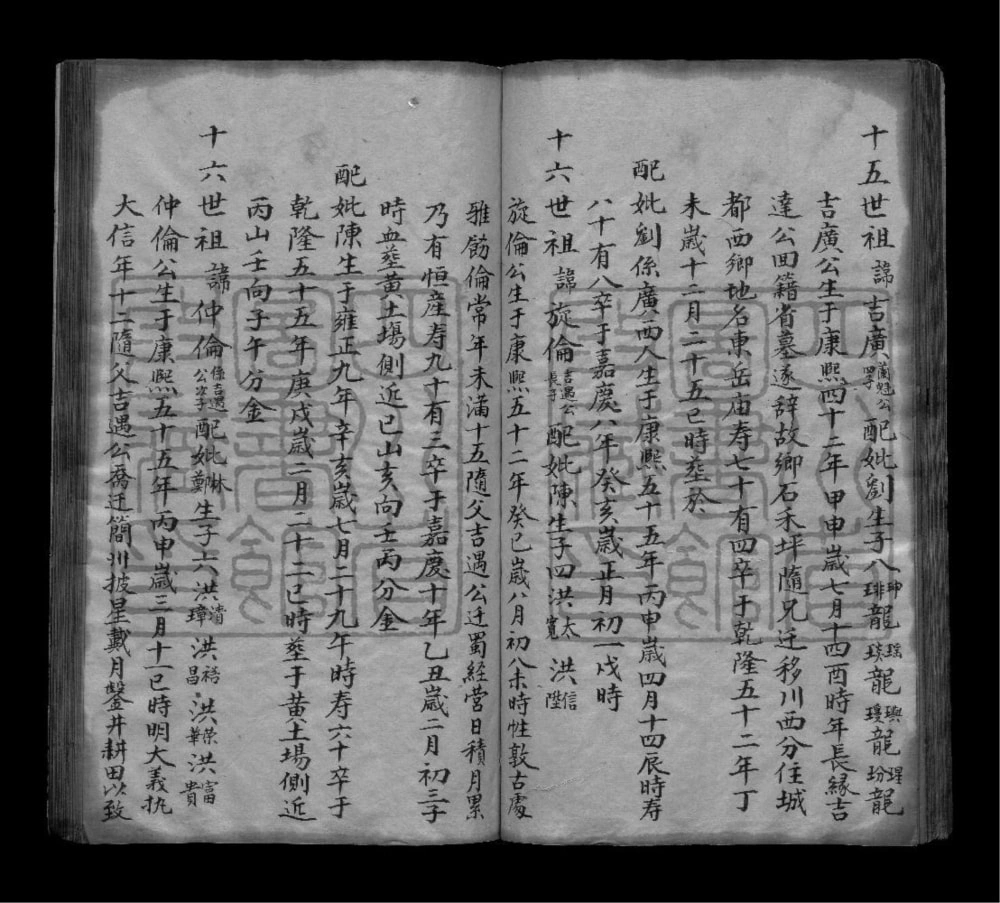 十五世祖諱吉廣蘭魁公四子配妣劉生子八珅琲龍瑤琰龍璵瓊龍瑆玢龍
吉廣公生于康熙四十二年甲申歲七月十四酉時年長緣吉
達公回籍省墓遂辞故鄉石禾坪隨兄迁移川西分住城
都西鄉地名東岳庙寿七十有四卒于乾隆五十二年丁
未歲十二月二十五巳時塟於
配妣劉係廣西人生于康熙五十五年丙申歲四月十四辰時寿
八十有八卒于嘉慶八年癸亥歲正月初一戌時
十六世祖諱旋倫吉遇公長子配妣陳生子四洪太寬洪信陞
旋倫公生于康熙五十二年癸巳歲八月初八未時性敦古處
雅飭倫常年未滿十五隨父吉遇公迁蜀經营日積月累
乃有恒産寿九十有三卒于嘉慶十年乙丑歲二月初三子
時血塟黄土場側近巳山亥向壬丙分金
配妣陳生于雍正九年辛亥歲七月二十九午時寿六十卒于
乾隆五十五年庚戌歲二月二十二巳時塟于黄土場側近
丙山壬向子午分金
十六世祖諱仲倫係吉遇公次子配妣林鄭生子六洪清璋洪裕昌洪榮華洪富貴
仲倫公生于康熙五十五年丙申歲三月十一巳時明大義执
大信年十二隨父吉遇公喬迁簡州披星戴月鑿井耕田以致